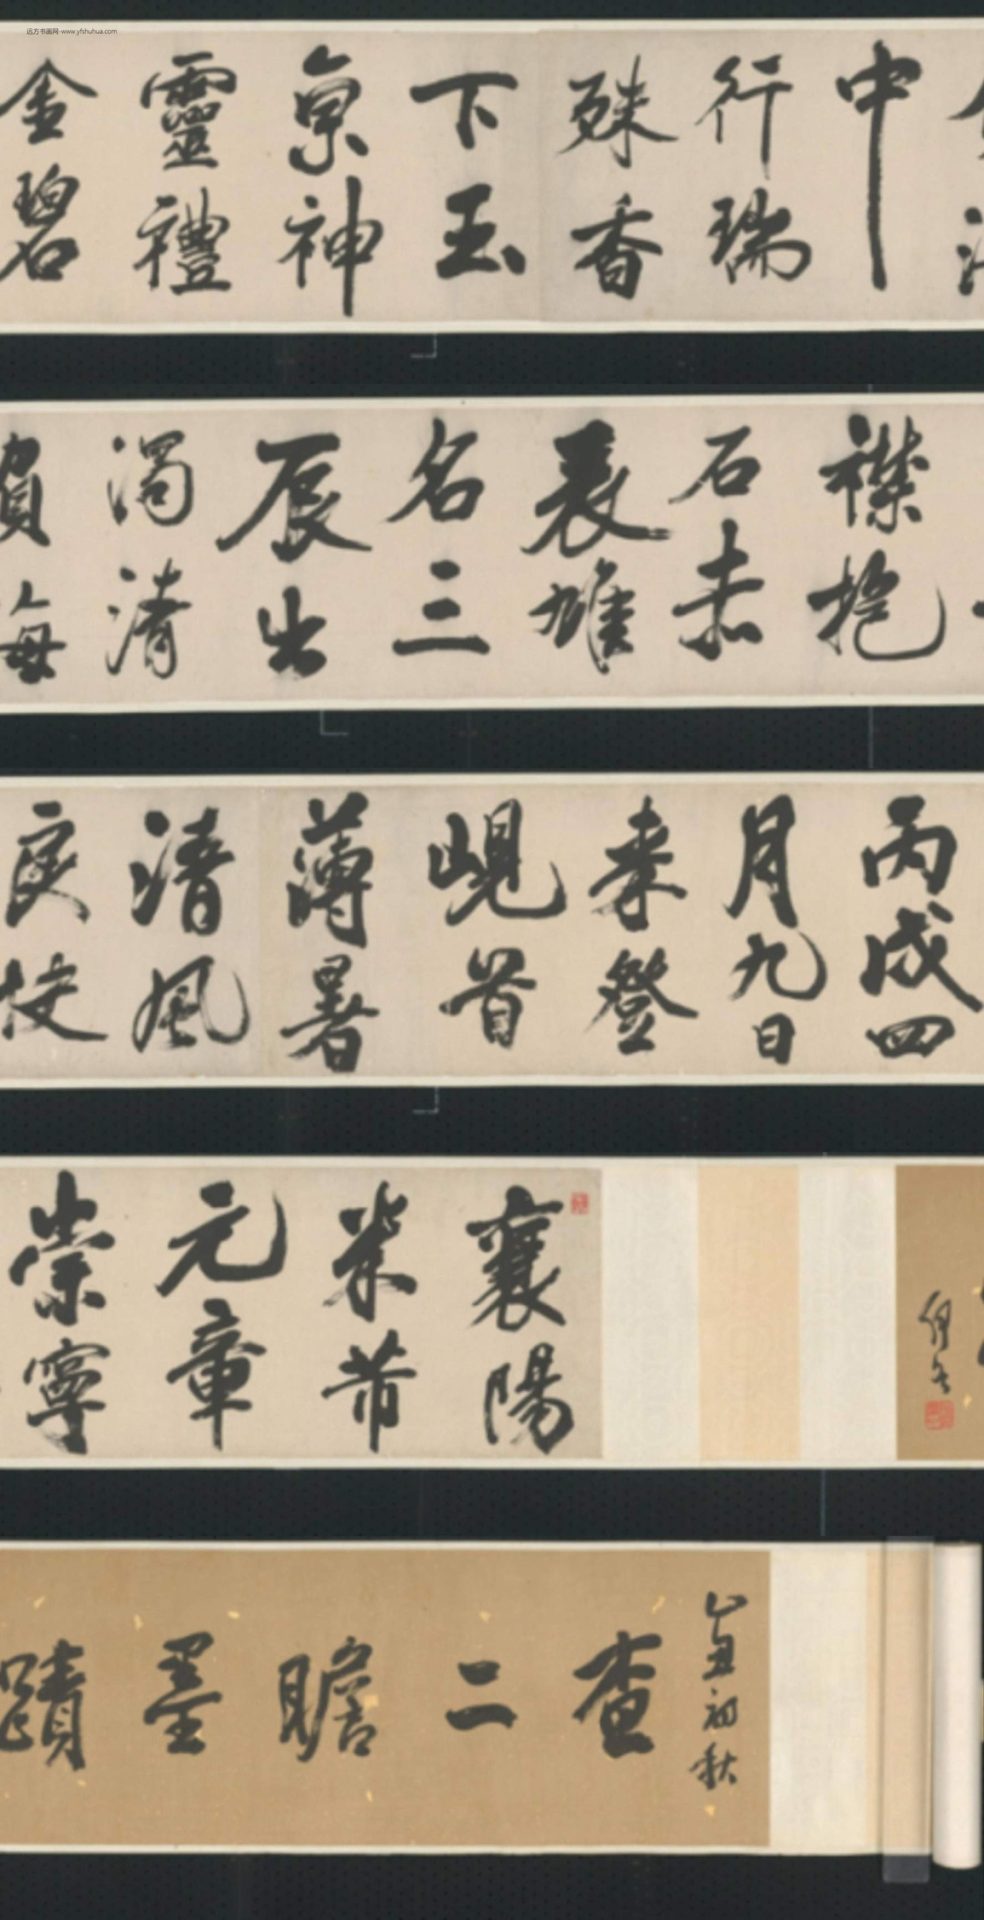 远方书画网-www.yfshuhua.com
中
行瑞
殊香
下玉
京神
靈禮
金碧
襟抱
石赤
堆
名三
辰出
濁清
丙戌四
月九日
來登
峴首
薄暑
清風
良
襄陽
米芾
元章
崇寧
乙丑初秋
查二瞻墨蹟